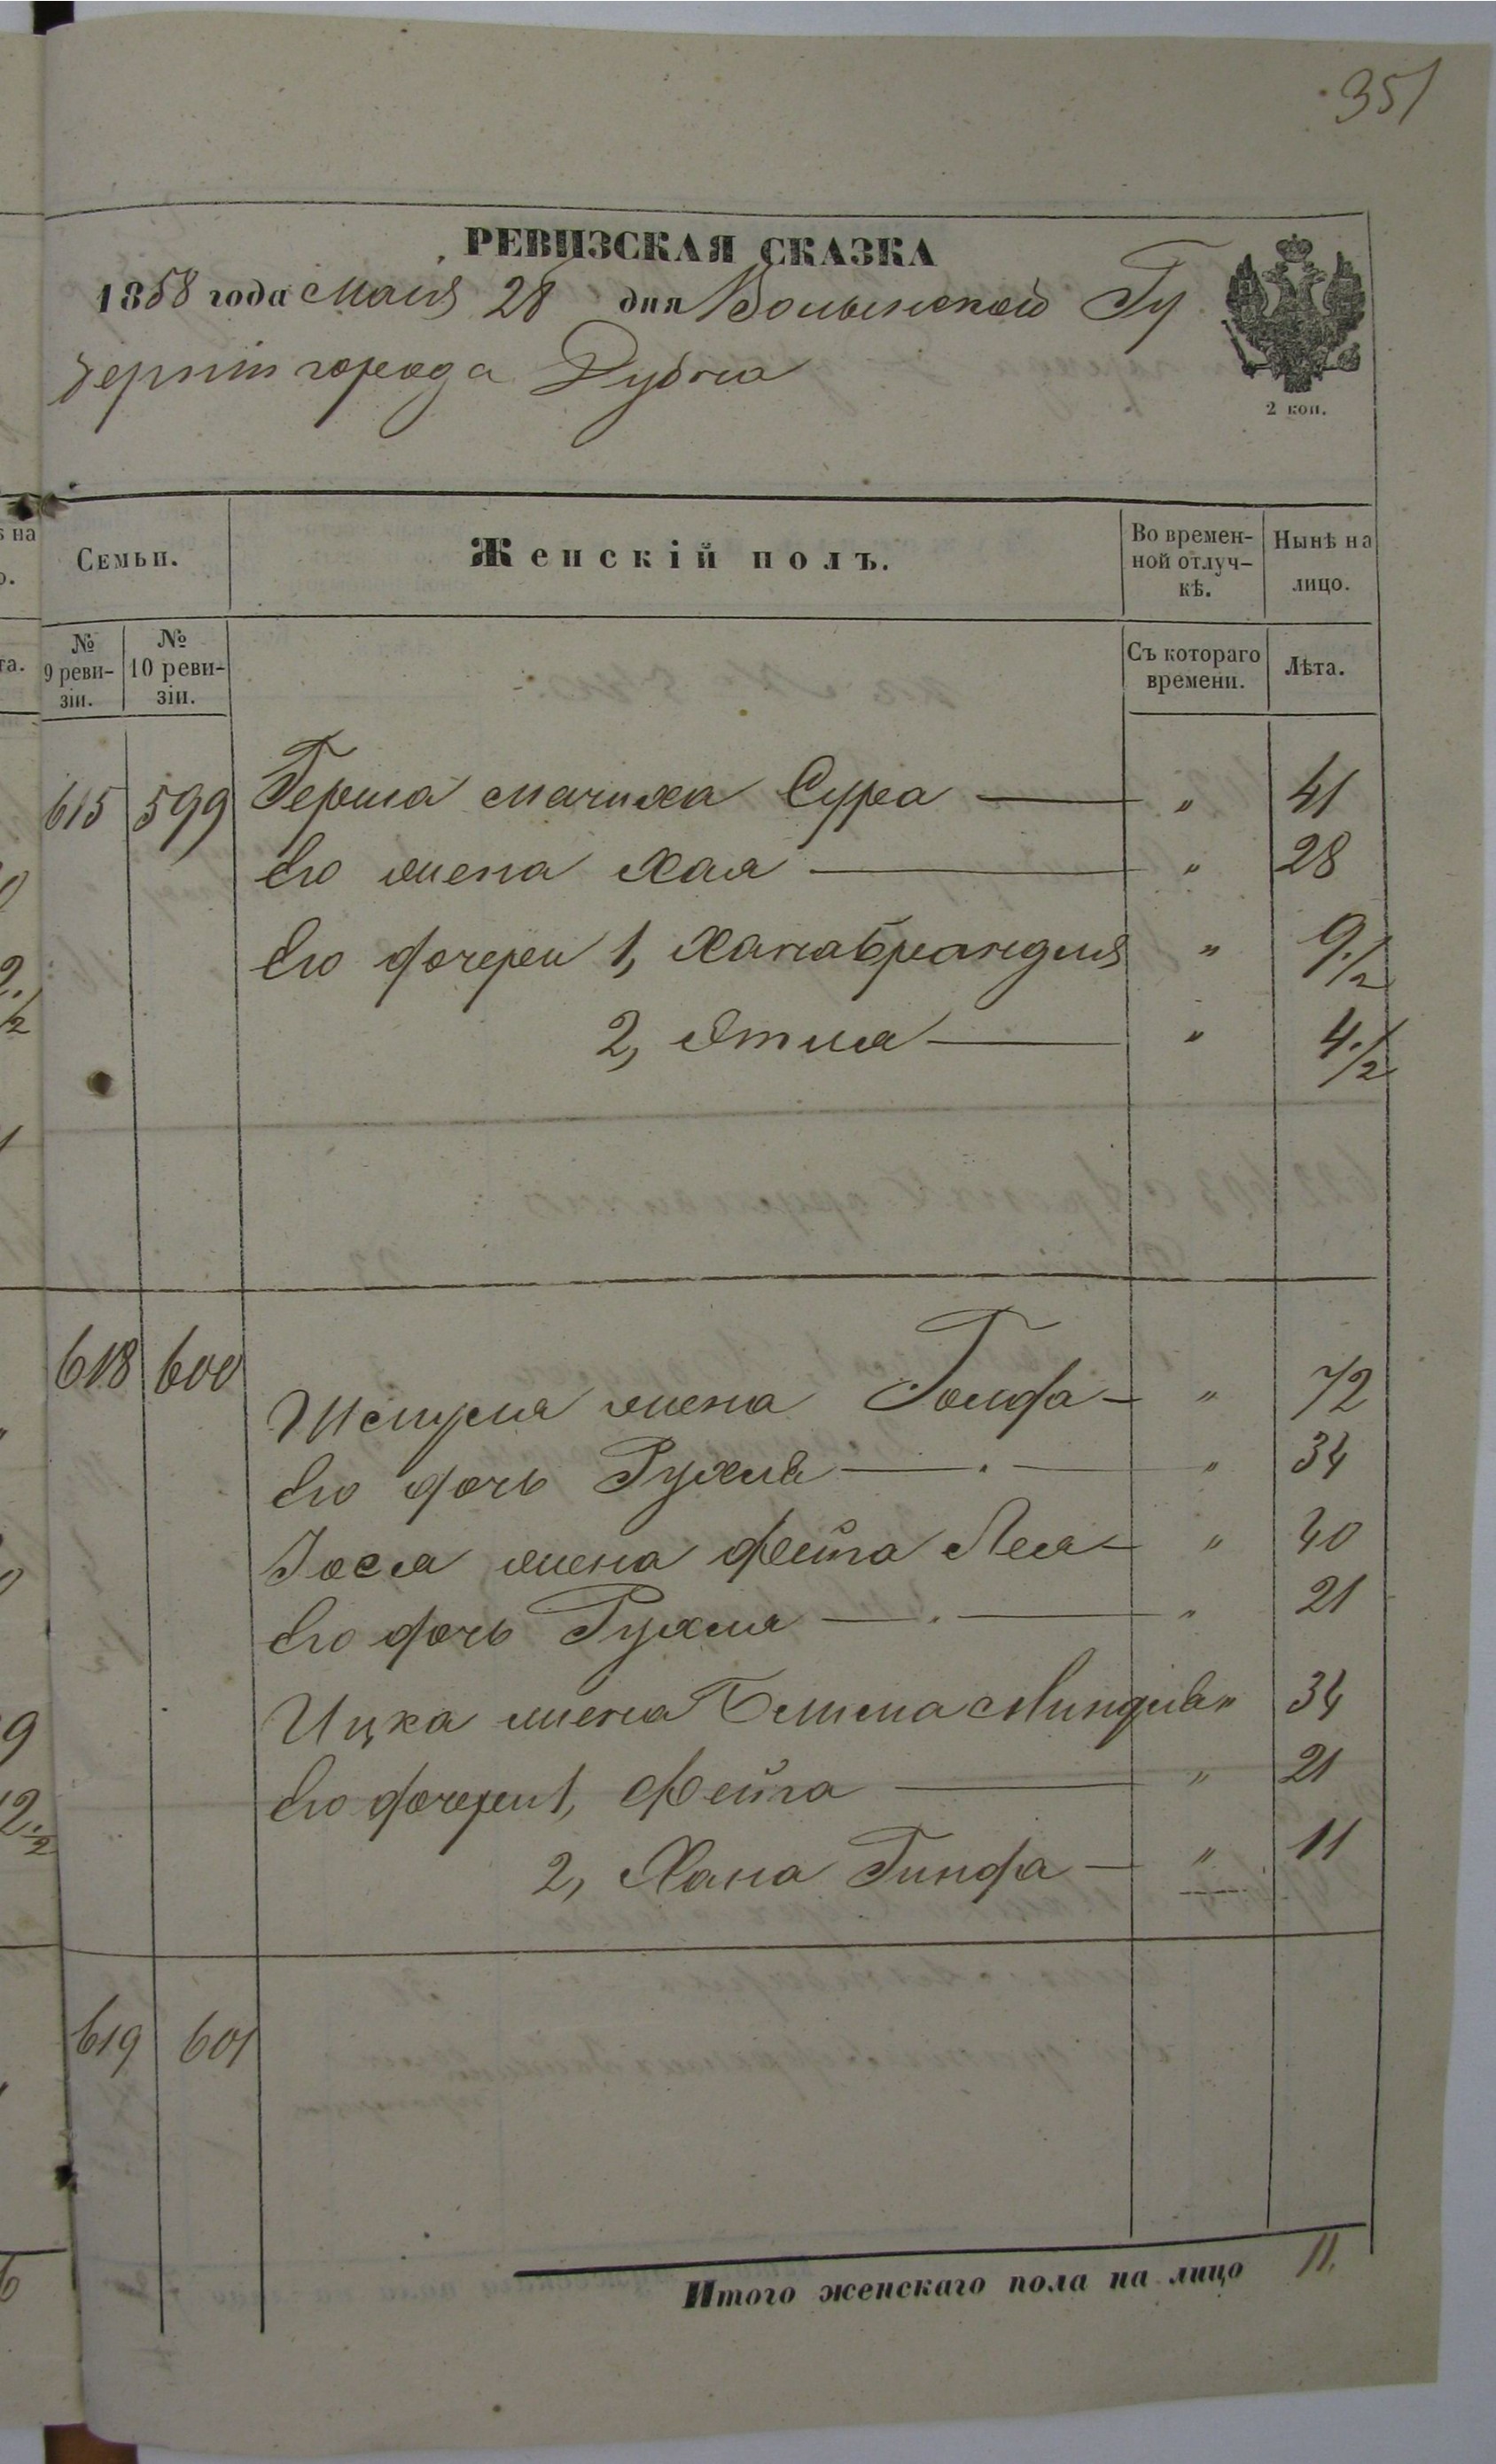 351
РЕВИЗСКАЯ СКАЗКА
1858 года Маія 28 дня Волынской Гу
берніи города Дубна
2 коп.
Семьи.
Женскій полъ.
Во времен-
ной отлуч-
кѣ.
Нынѣ на
лицо.
№
9 реви-
зіи.
№
10 реви-
зіи.
Съ котораго
времени.
Лѣта.
615 599 Герша мачиха Сура — " 41
Его жена Хая — " 28
Его дочери 1, Ханабрандля " 9 1/2
2, Этля — " 4 1/2
618 600
жена Голда — " 72
Его дочь Рухля — " 34
Иося жена Фейга Лея — " 40
Его дочь Рухля — " 21
Ицка жена Миндля " 34
Его дочери 1, Фейга — " 21
2, Хана Гинда — " 11
619 601
Итого женскаго пола на лицо 11.